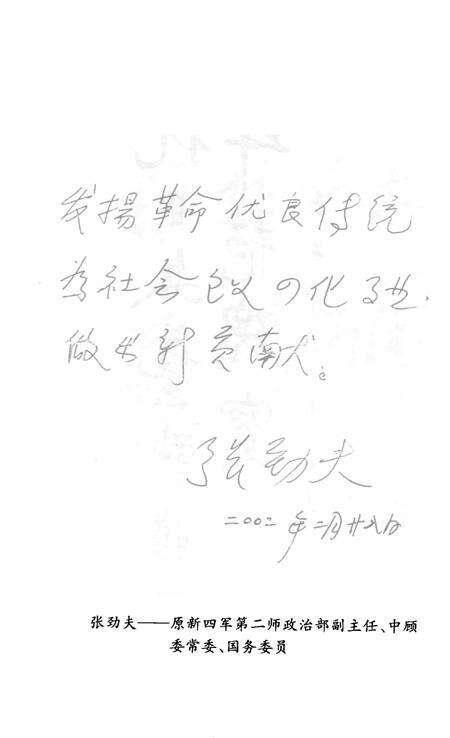 发揚革命优良传统
為社会主义四化事业，
做出新贡献。
张劲夫
二〇〇二年二月廿八日
张劲夫——原新四军第二师政治部副主任、中顾
委常委、国务委员